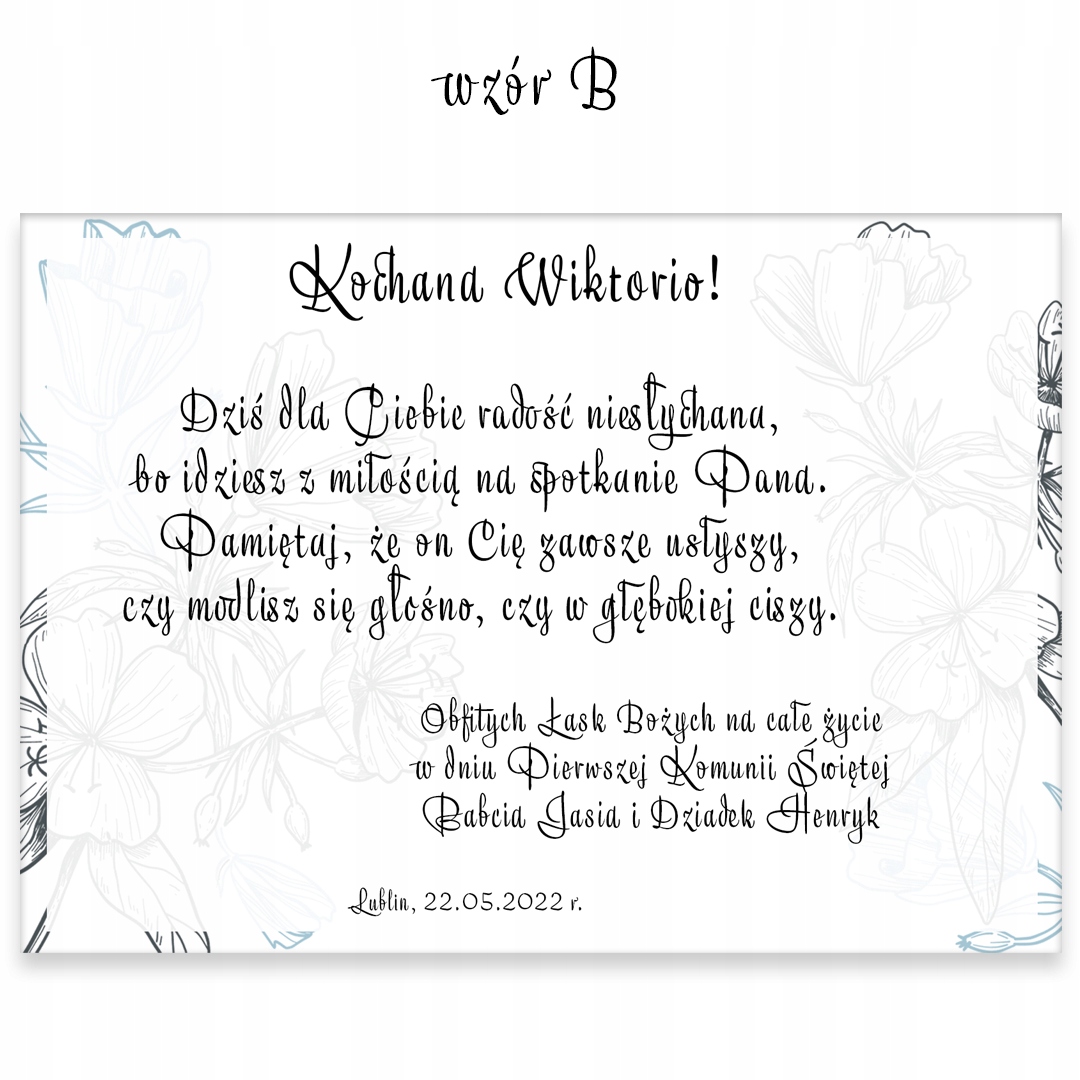 wzór B
Kochana Wiktorio!
Dziś dla Ciebie radość niesłychana,
bo idziesz z miłością na spotkanie Pana.
Pamiętaj, że on Cię zawsze usłyszy,
czy modlisz się głośno, czy w głębokiej ciszy.
Obfitych Łask Bożych na całe życie
w dniu Pierwszej Komunii Świętej
Babcia Jasia i Dziadek Henryk
Lublin, 22.05.2022 r.